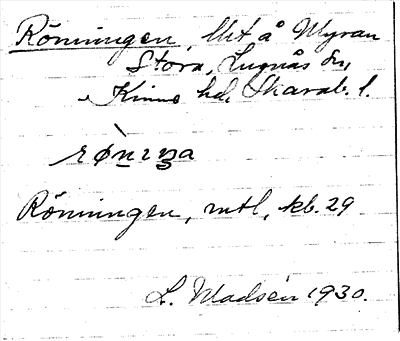 Rönningen, lht å Myran
Stora, Lugnås sn,
Kinne hd, Skarab. l.
rǿnıŋa
Rönningen, mtl, kb. 29
L. Madsén 1930.